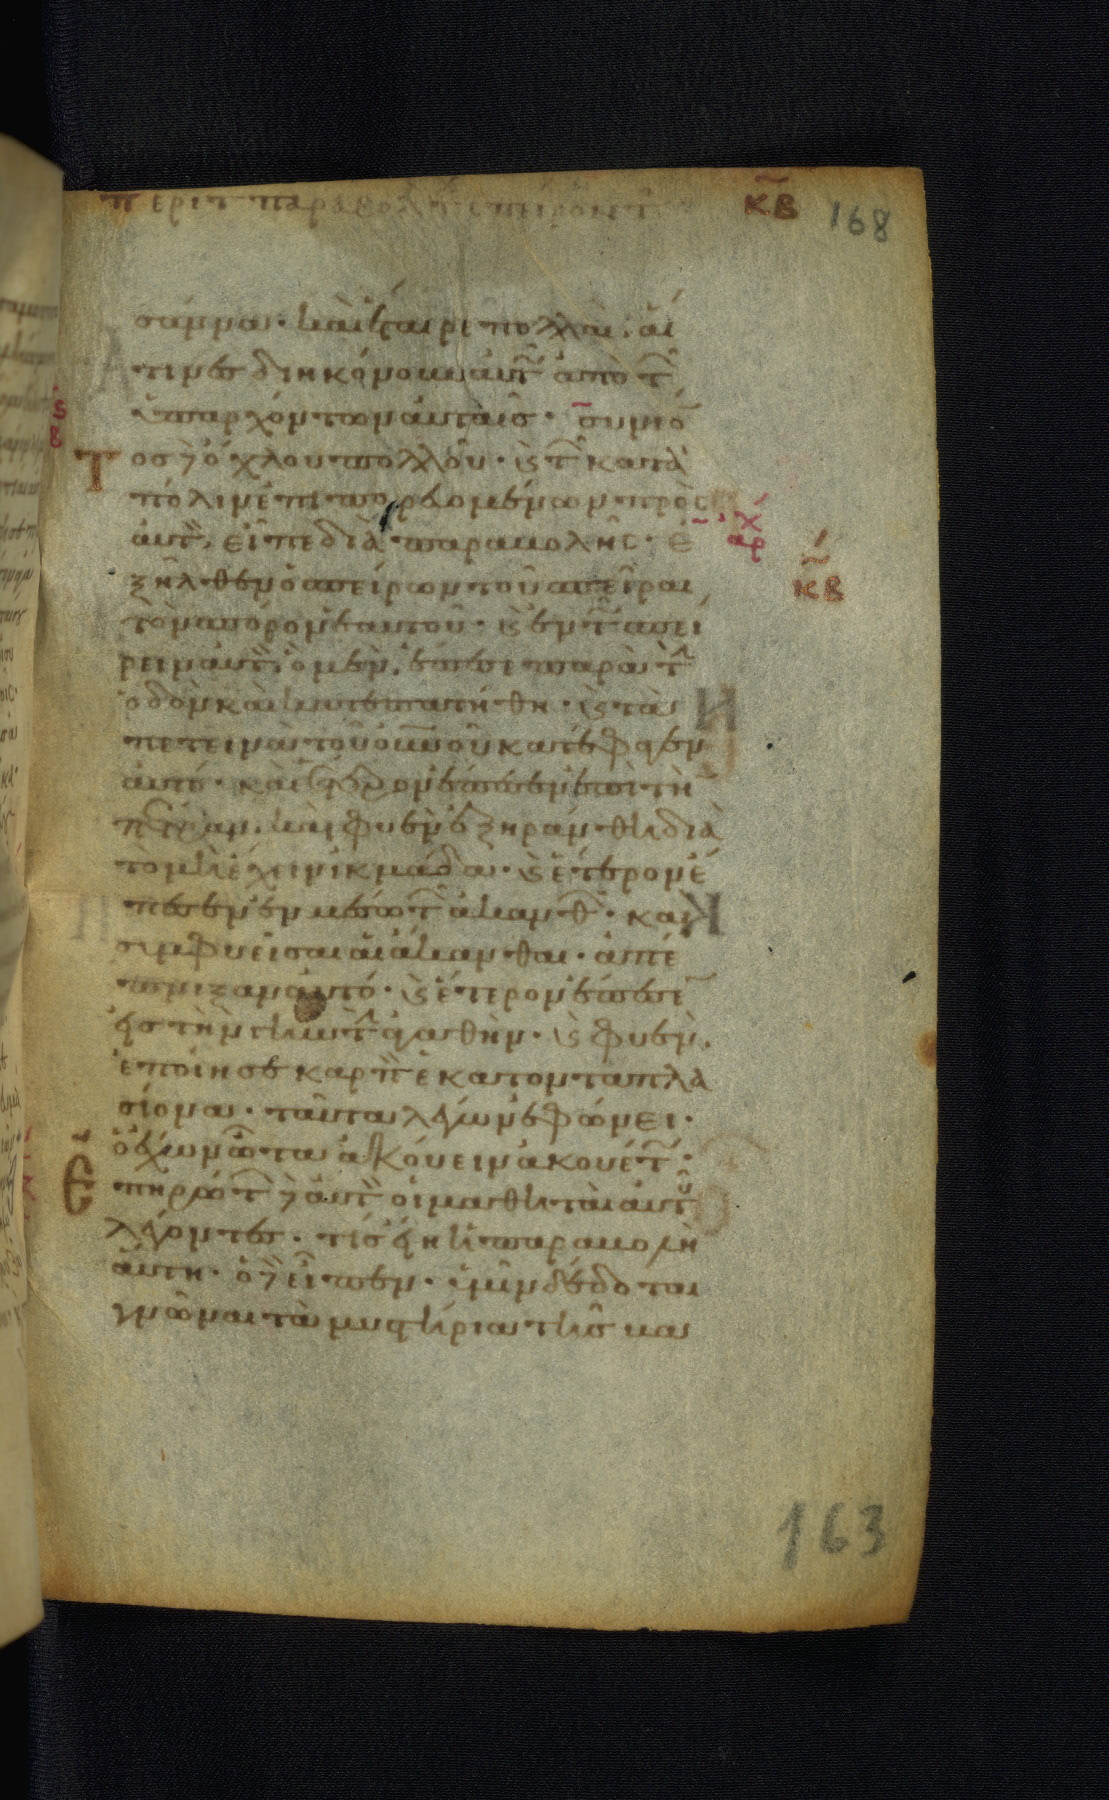 περι τ παραβολ τ σπειροντ
κβ 168
σάννα· καὶ ἕτεραι πολλαι· αἵ
τινες διηκόνουν αὐτ ἀπὸ τ
ὑπαρχόντων αὐταῖς· συνιό
Τοσ δ ὄχλου πολλοῦ· κ τ κατὰ
πόλιν ἐπιπορευομένων πρὸς
αὐτ, εἶπε διὰ παραβολῆς· ἐ
ἀρχ
ξῆλθεν ὁ σπείρων τοῦ σπεῖραι
κβ
τὸν σπόρον ἑαυτοῦ· κ ἐν τ σπεί
ρειν αὐτ, ὃ μὲν ἔπεσε παρὰ τ
ὁδὸν καὶ κατεπατήθη· κ τὰ
πετεινὰ τοῦ οὐνοῦ κατέφαγεν
αὐτό· καὶ ἕτερον ἔπεσεν ἐπὶ τὴ
πέτραν, καὶ φυὲν ἐξηράνθη διὰ
τὸ μὴ ἔχειν ἰκμάδα· κ ἕτερον ἔ
πεσεν ἐν μέσω τ ἀκανθ· και
συμφυεῖσαι αἱ ἄκανθαι· ἀπέ
πνιξαν αὐτό· κ ἕτερον ἔπεσε
εἰς τὴν γῆν τ ἀγαθὴν· κ φυὲν,
ἐποίησε καρπ ἑκατονταπλα
σίονα· ταῦτα λέγων ἐφώνει·
ὁ ἔχων ὦτα ἀκούειν ἀκουέτ·
Επηρώτ δ αὐτ οἱ μαθηταὶ αὐτ
λέγοντες· τίς εἴη ἡ παραβολὴ
αὕτη· ὁ δ εἶπεν· ὑμῖν δέδοται
γνῶναι τὰ μυστήρια τῆς βα
163